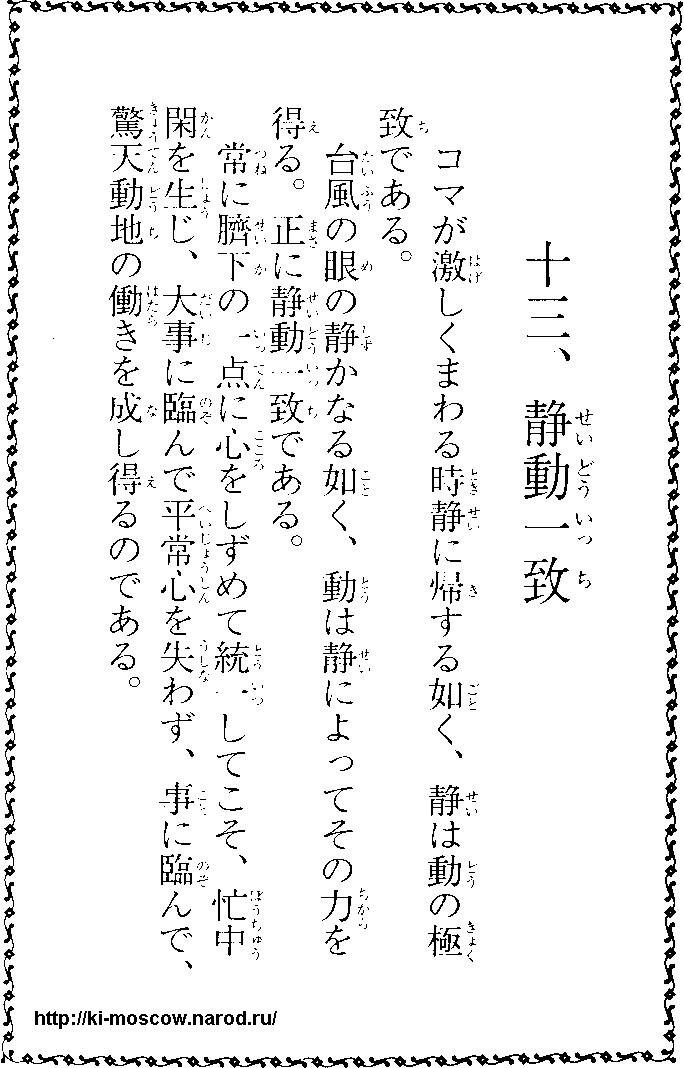 十三、静動一致
せいどういっち
コマが激しくまわる時静に帰する如く、静は動の極
致である。
台風の眼の静かなる如く、動は静によってその力を
得る。正に静動一致である。
常に臍下の一点に心をしずめて統一してこそ、忙中
閑を生じ、大事に臨んで平常心を失わず、事に臨んで、
驚天動地の働きを成し得るのである。
http://ki-moscow.narod.ru/